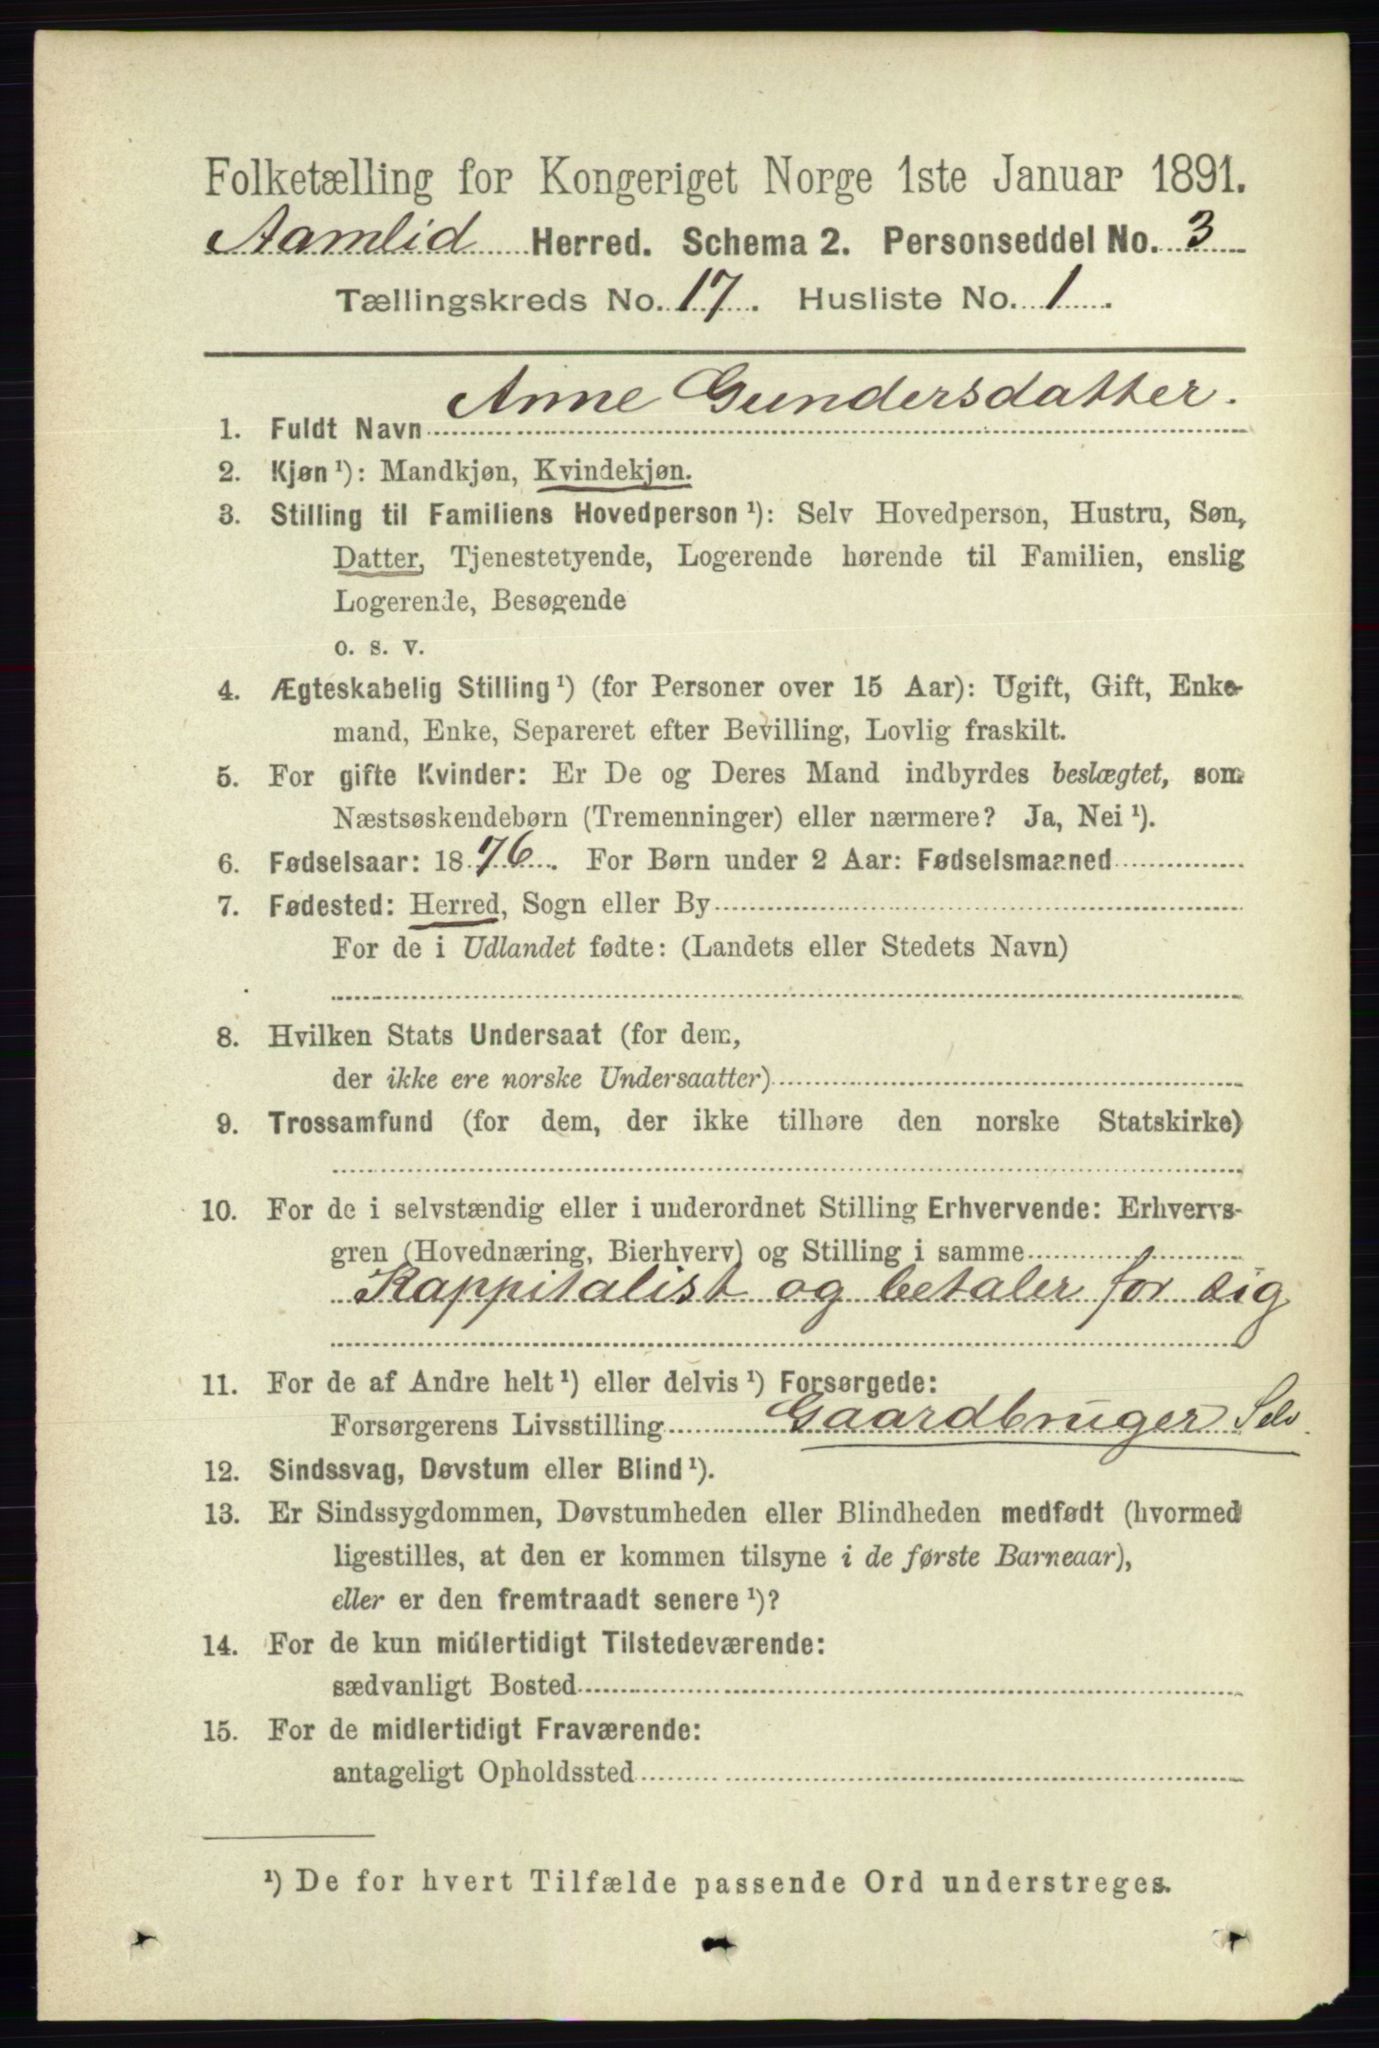 Folketælling for Kongeriget Norge 1ste Januar 1891.
Aamlid Herred. Schema 2. Personseddel No. 3
Tællingskreds No. 17. Husliste No. 1.
Anne Gundersdatter.
1. Fuldt Navn
2. Kjøn ¹): Mandkjøn, Kvindekjøn.
3. Stilling til Familiens Hovedperson ¹): Selv Hovedperson, Hustru, Søn,
Datter, Tjenestetyende, Logerende hørende til Familien, enslig
Logerende, Besøgende
o. s. v.
4. Ægteskabelig Stilling ¹) (for Personer over 15 Aar): Ugift, Gift, Enke-
mand, Enke, Separeret efter Bevilling, Lovlig fraskilt.
5. For gifte Kvinder: Er De og Deres Mand indbyrdes beslægtet, som
Næstsøskendebørn (Tremenninger) eller nærmere? Ja, Nei ¹).
6. Fødselsaar: 1876. For Børn under 2 Aar: Fødselsmaaned
7. Fødested: Herred, Sogn eller By
For de i Udlandet fødte: (Landets eller Stedets Navn)
8. Hvilken Stats Undersaat (for dem,
der ikke ere norske Undersaatter)
9. Trossamfund (for dem, der ikke tilhøre den norske Statskirke)
10. For de i selvstændig eller i underordnet Stilling Erhvervende: Erhvervs-
gren (Hovednæring, Bierhverv) og Stilling i samme
Kappitalist og betaler for sig
11. For de af Andre helt ¹) eller delvis ¹) Forsørgede:
Forsørgerens Livsstilling Gaardbruger Selv.
12. Sindssvag, Døvstum eller Blind ¹).
13. Er Sindssygdommen, Døvstumheden eller Blindheden medfødt (hvormed
ligestilles, at den er kommen tilsyne i de første Barneaar),
eller er den fremtraadt senere ¹)?
14. For de kun midlertidigt Tilstedeværende:
sædvanligt Bosted
15. For de midlertidigt Fraværende:
antageligt Opholdssted
¹) De for hvert Tilfælde passende Ord understreges.